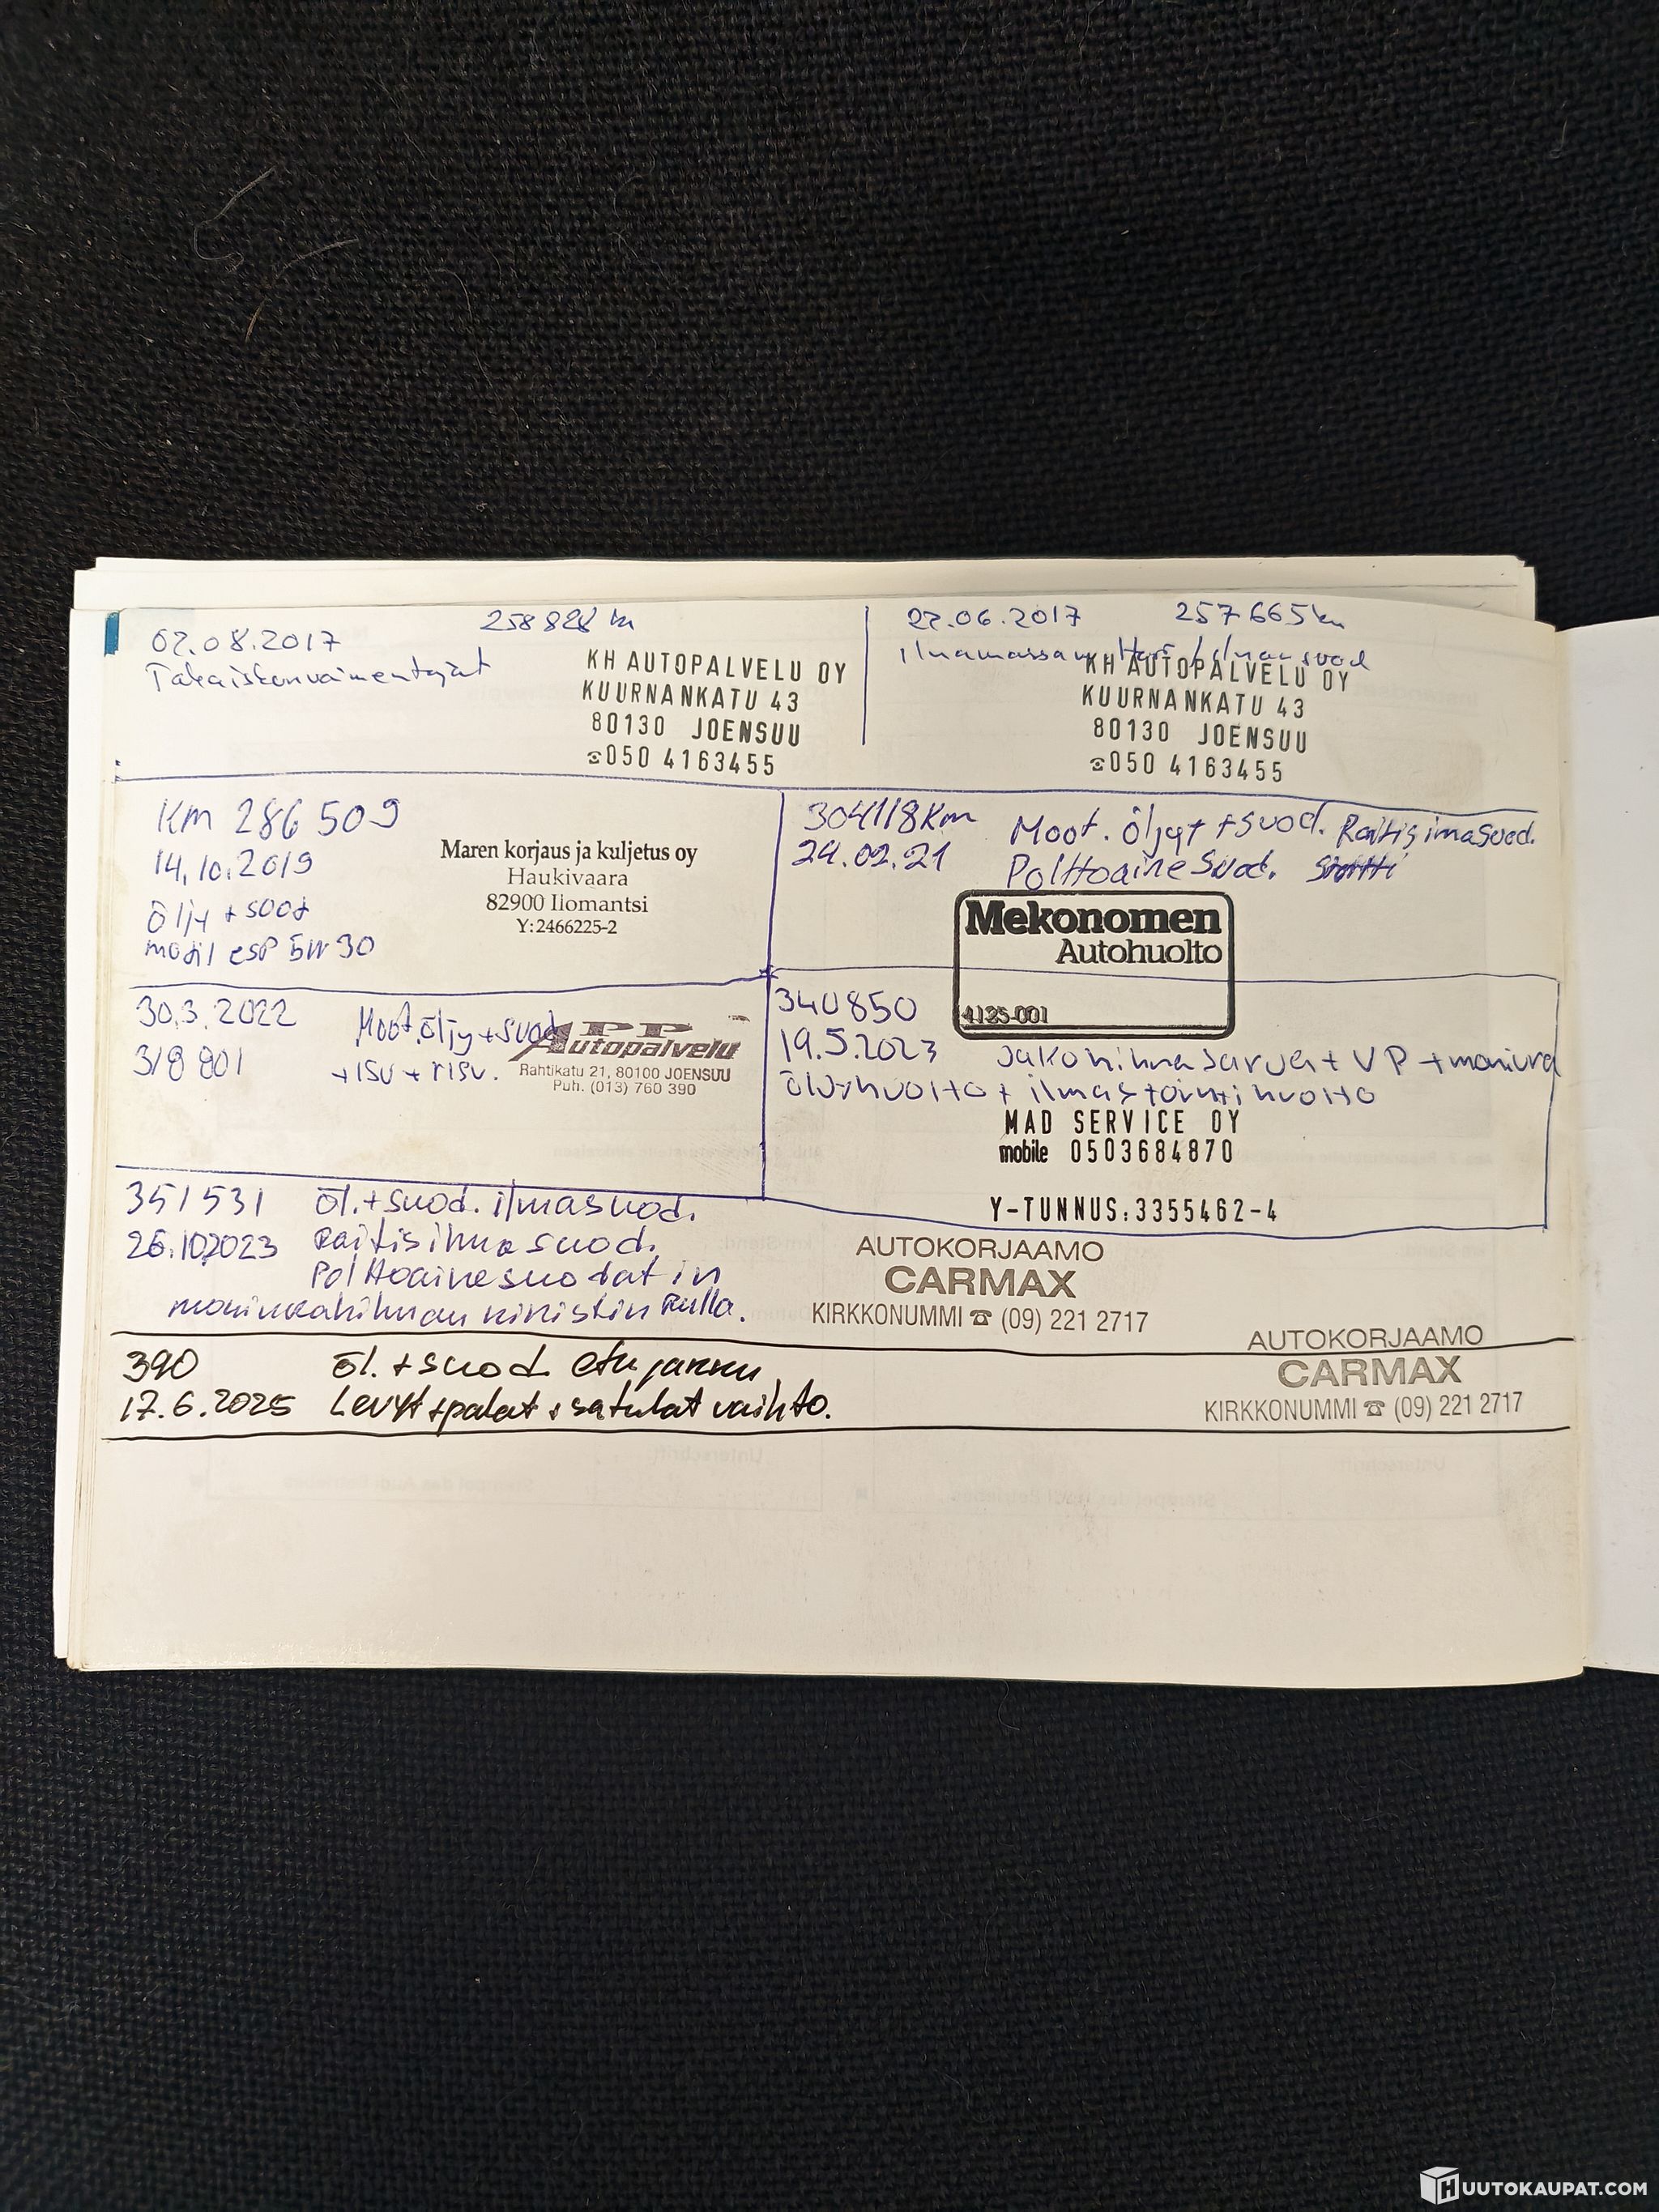 02.08.2017
258828 km
Takaiskunvaimentajat
KH AUTOPALVELU OY
KUURNANKATU 43
80130 JOENSUU
☎050 4163455
22.06.2017 257665km
ilmamassam
KH AUTOPALVELU OY
KUURNANKATU 43
80130 JOENSUU
☎050 4163455
KM 286 509
14.10.2019
Öljy + suod
mobil esp 5W30
Maren korjaus ja kuljetus oy
Haukivaara
82900 Ilomantsi
Y:2466225-2
304118Km Moot. Öljyt + suod. Raitisimasuod.
24.02.21 Polttoaine Suod.
Mekonomen
Autohuolto
4125-001
30.3.2022 Moot.öljy + suod
318 801 + ISU + risu.
PP
Autopalvelu
Rahtikatu 21, 80100 JOENSUU
Puh. (013) 760 390
340850
19.5.2023 Jakohihnasarja + VP + moniura
Öljyhuolto + ilmastointihuolto
MAD SERVICE OY
mobile 0503684870
Y-TUNNUS:3355462-4
351531 öl.+suod. ilmasuod.
26.10.2023 Raitisilmasuod.
Polttoainesuodatin
moniurahihnan kiristin Rulla.
AUTOKORJAAMO
CARMAX
KIRKKONUMMI ☎ (09) 221 2717
390 öl. + suod. etujarru
17.6.2025 Levyt + palat + satulat vaihto.
AUTOKORJAAMO
CARMAX
KIRKKONUMMI ☎ (09) 221 2717
HUUTOKAUPAT.COM